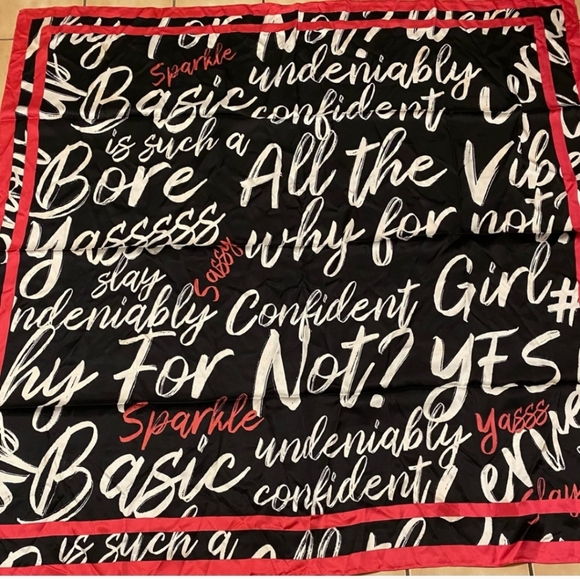 why For Not? Werk
Sparkle
undeniably
Basic
confident
is such a
Bore
All the Vib
Yasssss
Sassy
why for not?
slay
ndeniably
Confident Girl #
hy For Not? YES
Sparkle
undeniably
Yasss
Basic
confident
slay
is such a
All the